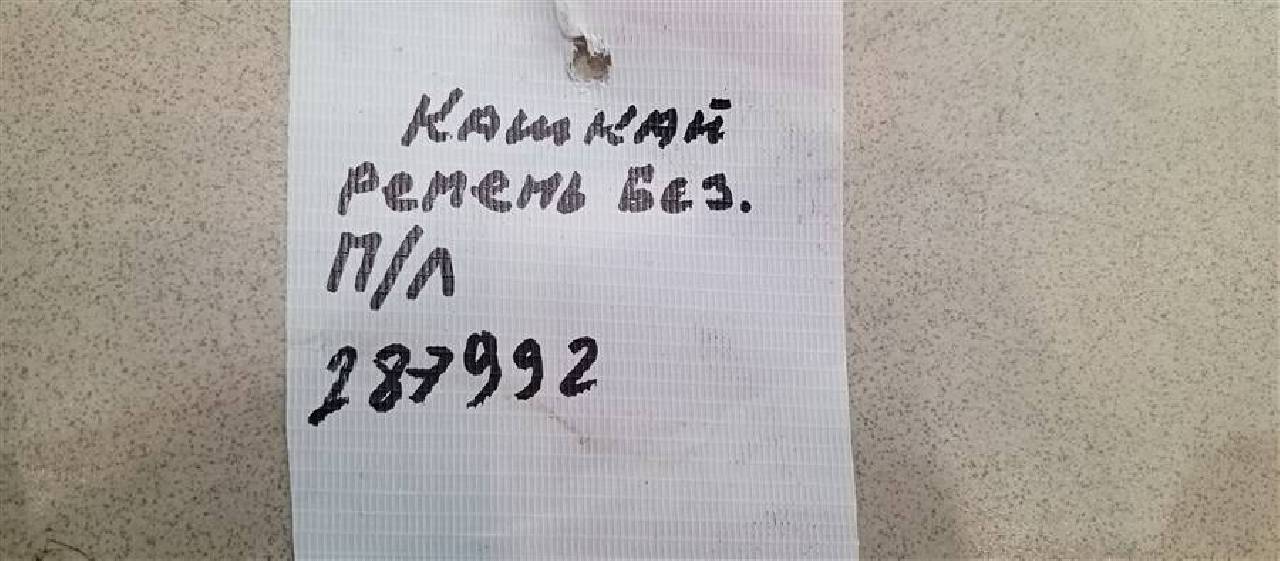 Кашкай
Ремень Без.
П/Л
287992